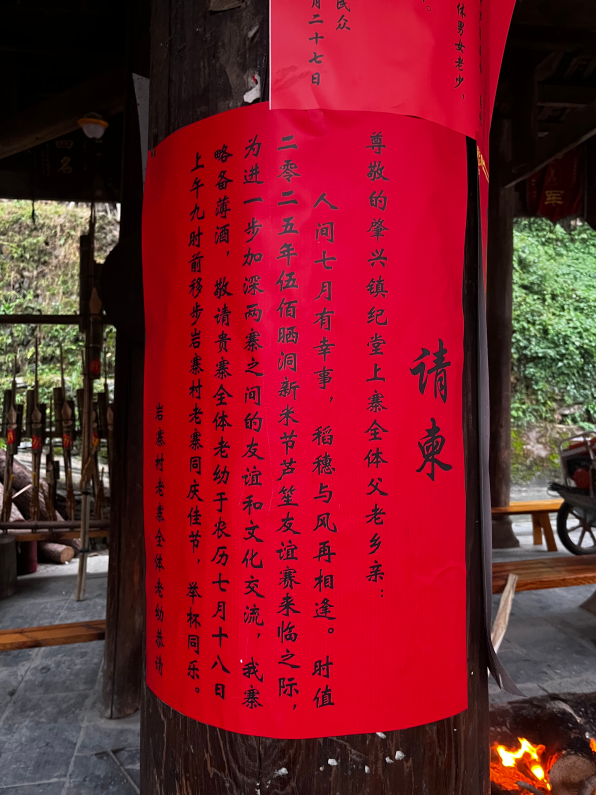 体男女老少，
。
民众
月二十七日
请柬
尊敬的肇兴镇纪堂上寨全体父老乡亲：
人间七月有幸事，稻穗与风再相逢。时值
二零二五年伍佰晒洞新米节芦笙友谊赛来临之际，
为进一步加深两寨之间的友谊和文化交流，我寨
略备薄酒，敬请贵寨全体老幼于农历七月十八日
上午九时前移步岩寨村老寨同庆佳节，举杯同乐。
岩寨村老寨全体老幼恭请